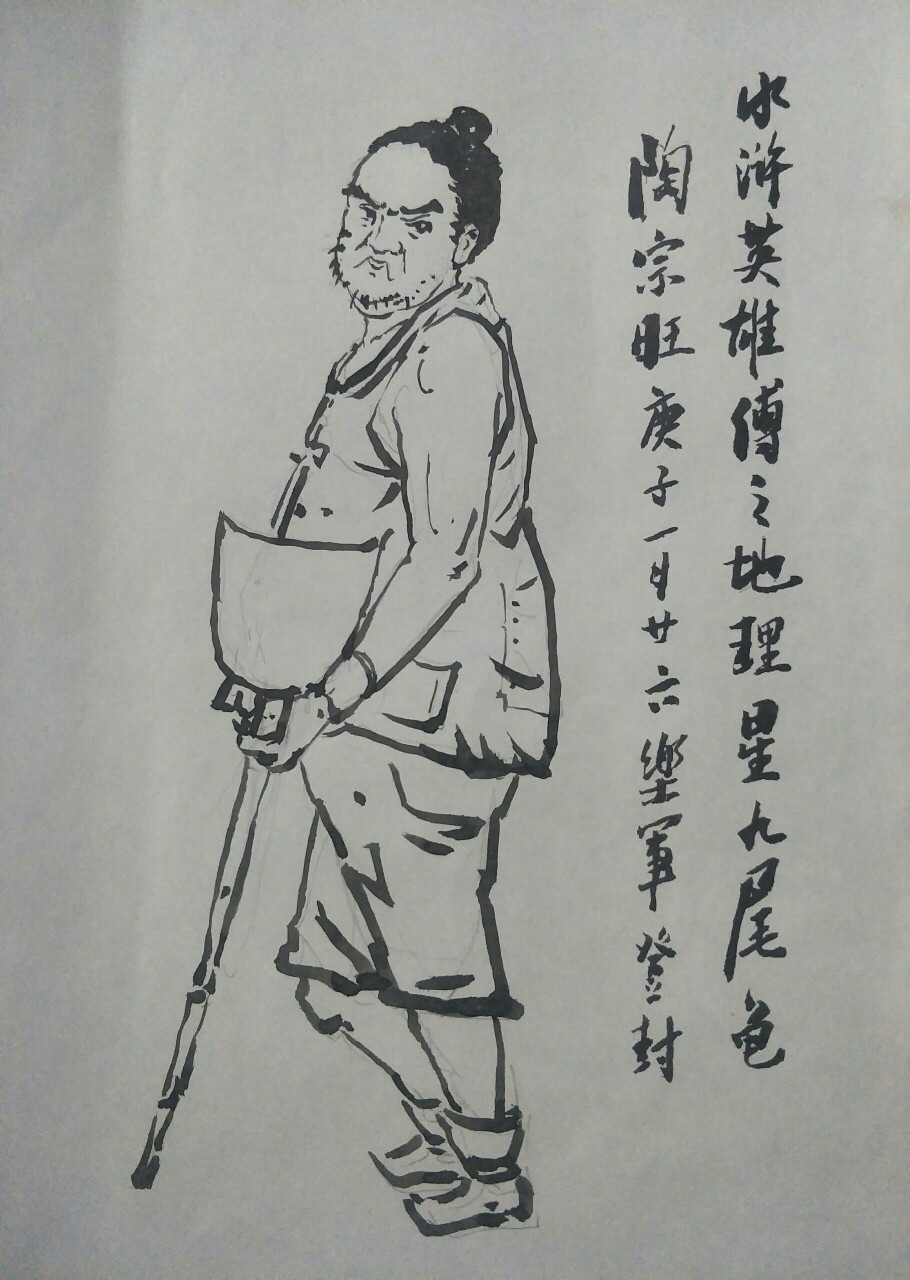 水滸英雄傳之地理星九尾龟
陶宗旺庚子一月廿六樂軍登封